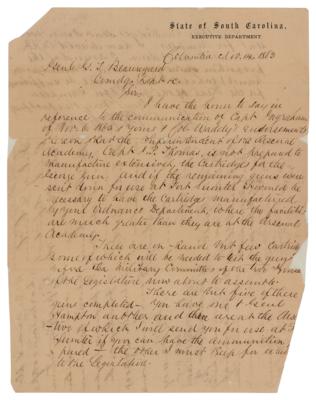 State of South Carolina,
EXECUTIVE DEPARTMENT
Columbia 1863
Genl G. T. Beauregard
Comdg Dept &c
Sir
I have the honor to say in
reference to the communication of Capt Ingraham
of & yours & endorsements
thereon that the Superintendent of the Arsenal
Academy, Capt J. P. Thomas, is not prepared to
manufacture extensively, the Cartridges for the
Gun, and if the remaining guns were
sent down for use at Fort Sumter it would be
necessary to have the Cartridges manufactured
by your Ordnance Department, where the facilities
are much greater than they are at the Arsenal
Academy.
There are on hand but few Cartridges
some of which will be needed to test the guns
before the Military Committee of the two Houses
of the Legislature now about to assemble.
There are but five of these
guns completed - You have one & Genl
Hampton another and there are at the
two of which I will send you for use at
Sumter if you can have the ammunition
pared - the other I must keep for
to the Legislature.